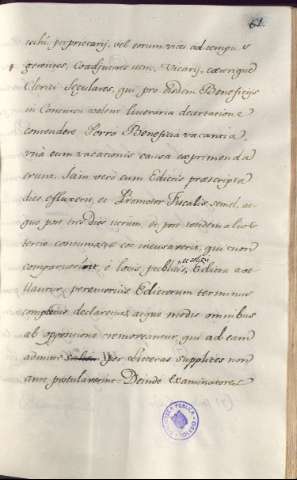 61.
rochi, proprietarij, vel eorum vices ad tempus
gerentes, Coadjutores item, Vicarij, cæterique
Clerici Sæculares, qui pro iisdem Beneficijs
in Concursu velint litteraria decertatione
contendere. Porro Beneficia vacantia,
unà cum vacationis causa exprimenda
erunt. Iam vero cum Edictis præscripta
dies effluxerit, et Promotor Fiscalis semel, at
que per tres dies iterum, et per totidem alios
tertio contumaces accusaverit, qui non
comparuerint, è locis publicis Edicta aue
llantur, peremtorius Edictorum terminus
completus declaretur, atque modo omnibus
ab oppositione removeantur, qui ad eam
admitti per litteras supplices non
ante postulaverint. Deinde Examinatores